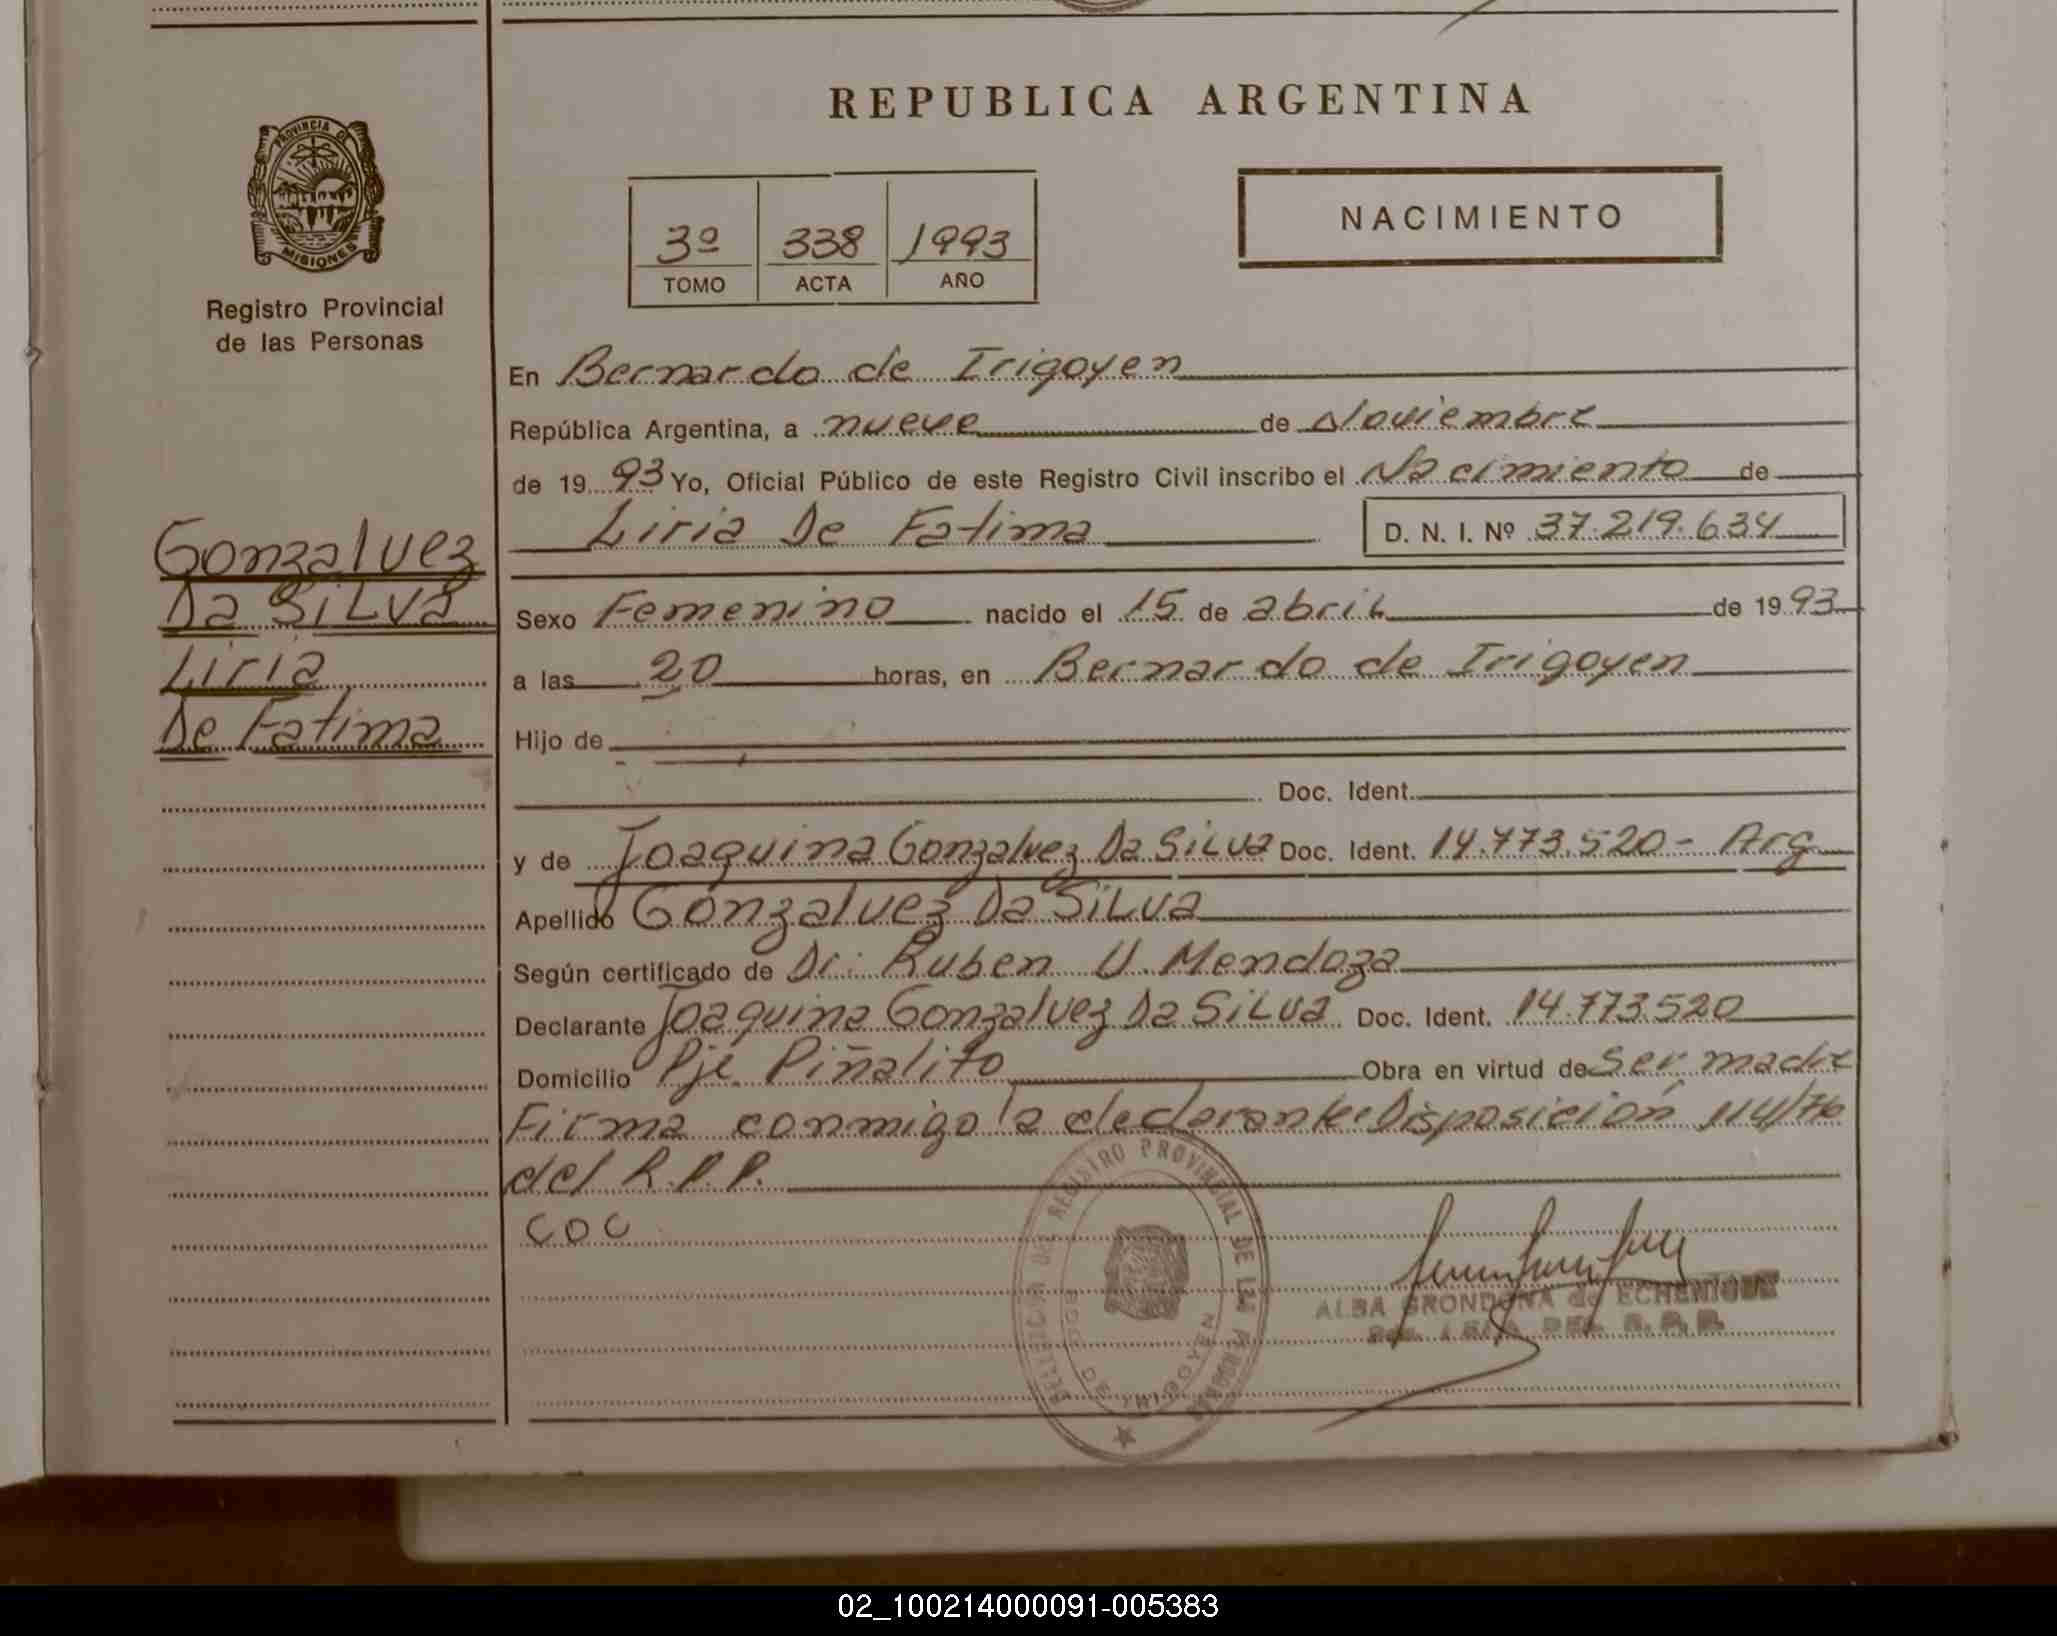 REPUBLICA ARGENTINA
PROVINCIA DE
MISIONES
Registro Provincial
de las Personas
3º 338 1993
TOMO ACTA AÑO
NACIMIENTO
Gonzalvez
Da SiLva
Liria
De Fatima
En Bernardo de Irigoyen
República Argentina, a nueve de Noviembre
de 1993 Yo, Oficial Público de este Registro Civil inscribo el Nacimiento de
Liria De Fatima D. N. I. Nº 37.219.634
Sexo Femenino nacido el 15 de abril de 1993
a las 20 horas, en Bernardo de Irigoyen
Hijo de
Doc. Ident.
y de Joaquina Gonzalvez Da SiLva Doc. Ident. 14.773.520 - Arg
Apellido Gonzalvez Da SiLva
Según certificado de Dr. Ruben U. Mendoza
Declarante Joaquina Gonzalvez Da SiLva Doc. Ident. 14.773.520
Domicilio Pje Piñalito Obra en virtud de ser madre
Firma conmigo la declarante Disposición
del R.P.P.
COC
REGISTRO PROVINCIAL DE LAS PERSONAS
BDO. DE IRIGOYEN
ALBA GRONDONA de ECHENIQUE
DEL R. P. P.
02_100214000091-005383